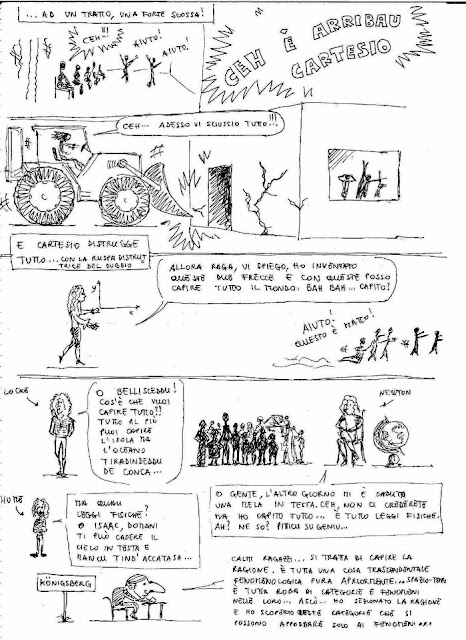 ... AD UN TRATTO, UNA FORTE SCOSSA!
CEH!!!
AIUTO!
AIUTO!
CEH È ARRIBAU
CARTESIO
CEH... ADESSO VI SCIUSCIO TUTTO!!!
E CARTESIO DISTRUGGE
TUTTO... CON LA RUSPA DISTRUT
TRICE DEL DUBBIO
ALLORA RAGA, VI SPIEGO, HO INVENTATO
QUESTE DUE FRECCE E CON QUESTE POSSO
CAPIRE TUTTO IL MONDO. BAH BAH... CAPITO?
Y
X
AIUTO!
QUESTO È MATTO!
LOCKE
O BELLIXEDDU!
COS'È CHE VUOI
CAPIRE TUTTO?!
TUTTO AL PIÙ
PUOI CAPIRE
L'ISOLA MA
L'OCEANO
TIRADINDEDDU
DE CONCA...
NEWTON
O GENTE, L'ALTRO GIORNO MI È CADUTA
UNA MELA IN TESTA. CEH, NON CI CREDERETE
MA HO CAPITO TUTTO... È TUTTO LEGGI FISICHE.
AH? NE SO? PITICU SU GENIU...
HUME
MA QUALI
LEGGI FISICHE?
O ISAAC, DOMANI
TI PUÒ CADERE IL
CIELO IN TESTA E
MANCU TIND'ACCATASA...
KÖNIGSBERG
CALMI RAGAZZI... SI TRATTA DI CAPIRE LA
RAGIONE. È TUTTA UNA COSA TRASCENDENTALE
FENOMENOLOGICA PURA APRIORMENTE... SPAZIO-TEMPO
È TUTTA ROBA DI CATEGORIE E FENOMENI
NELLE LORO... HO SEZIONATO LA RAGIONE
E HO SCOPERTO QUESTE CATEGORIE CHE SI
POSSONO APPLICARE SOLO AI FENOMENI...